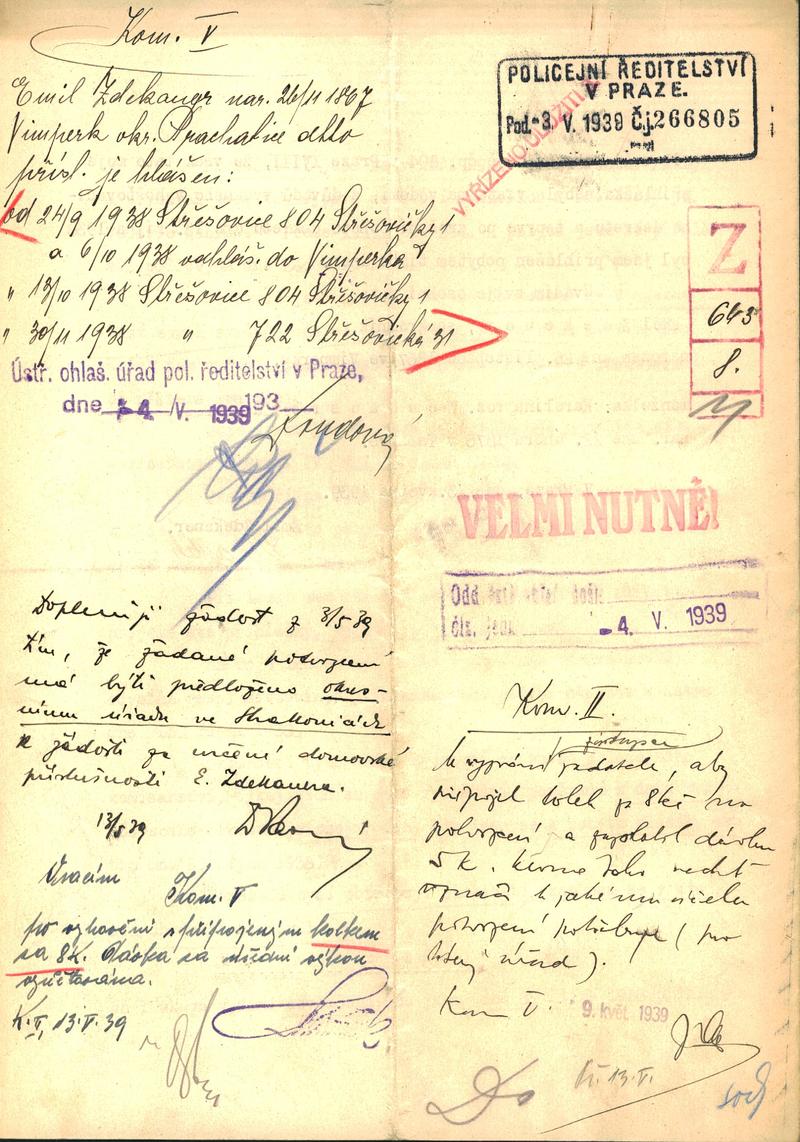 Kom. V
Emil Zdekauer nar. 26/11 1867
Vimperk okr. Prachatice detto
přísl. je hlášen:
od 24/9 1938 Střešovice 804 Střešovičky 1
a 6/10 1938 odhláš. do Vimperka
" 13/10 1938 Střešovice 804 Střešovičky 1
" 30/11 1938 " 722 Střešovická 31
Ústř. ohlaš. úřad pol. ředitelství v Praze,
dne 4. V. 1939 193
Doplňuji žádost z 3/5 39
tím, že žádané potvrzení
má býti předloženo okres-
nímu úřadu ve Strakonicích
k žádosti za určení domovské
příslušnosti E. Zdekauera.
13/5 39
Vracím
Kom. V
po vyhovění s připojeným kolkem
za 8K. Dávka za úřední výkon
vyúčtována.
K. II, 13.V.39
POLICEJNÍ ŘEDITELSTVÍ
V PRAZE.
Pod. -3. V. 1939 Č.j. 266805
VYŘÍZENO ULOŽITI
Z
643
8.
VELMI NUTNÉ!
došlo
-4. V. 1939
Kom. II.
k vyzvání žadatele, aby
připojil kolek p 8Kč na
potvrzení a zaplatil dávku
5 K. kromě toho nechť
označí k jakému účelu
potvrzení potřebuje (pro
který úřad).
Kom V. 9. květ. 1939
13.V.